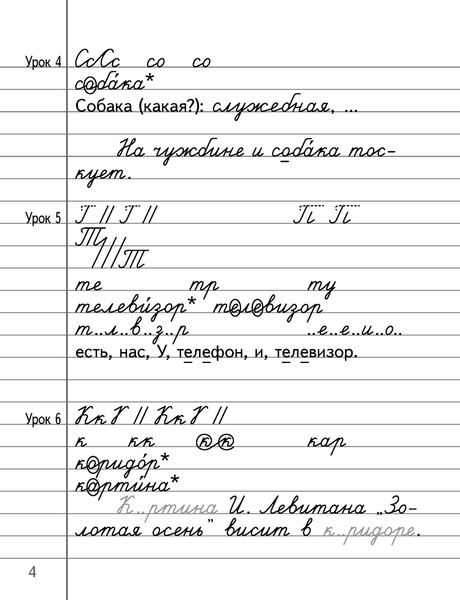 Урок 4 СсСс со со
собáка*
Собака (какая?): служебная, ...
На чужбине и собáка тос-
кует.
Урок 5 Г // Г // П П
Т///Т
те тр ту
телевúзор* телевизор
т..л..в..з..р ..е..е..и..о..
есть, нас, У, телефон, и, телевизор.
Урок 6 КкГ // КкГ //
к кк кк кар
коридóр*
картúна*
К..ртина И. Левитана „Зо-
лотая осень" висит в к..ридоре.
4